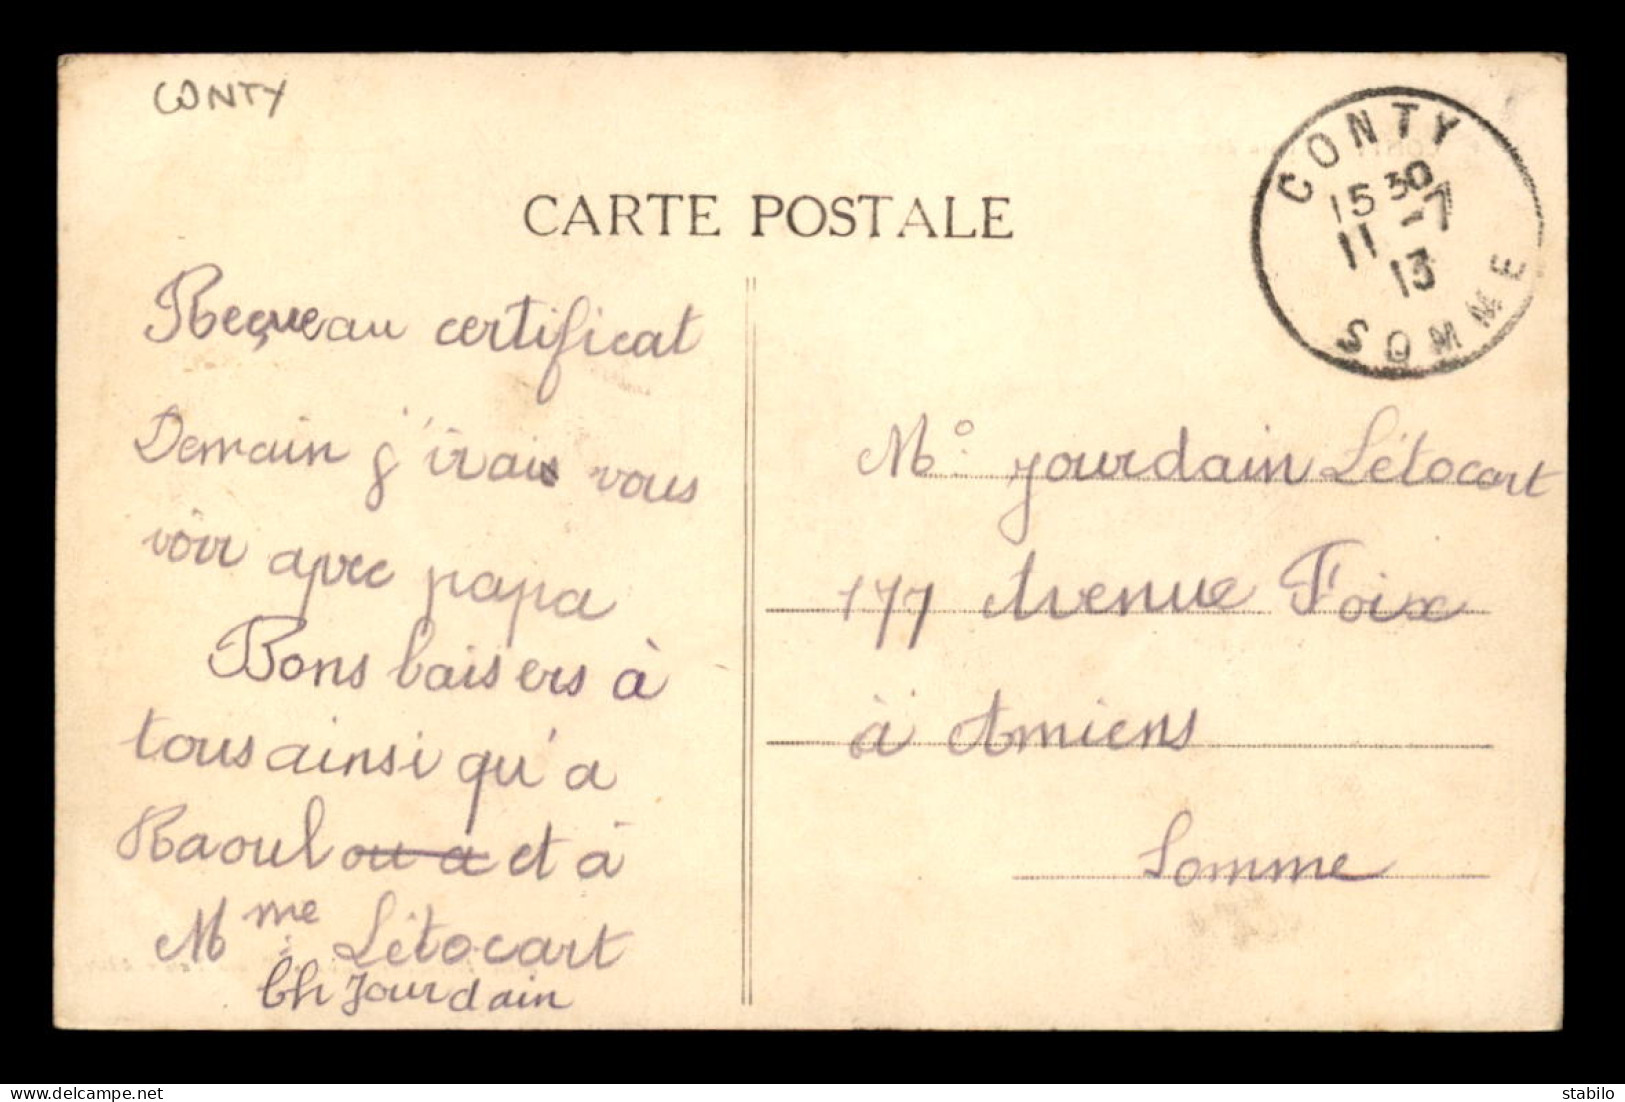 CONTY
CARTE POSTALE
CONTY
15 30
11 -7
13
SOMME
Reçue au certificat
Demain j'irais vous
voir avec papa
Bons baisers à
tous ainsi qu'a
Raoul ou a et à
Mme Létocart
Ch Jourdain
Mo. jourdain Létocart
177 Avenue Foix
à Amiens
Somme
stabilo
delcampe.net